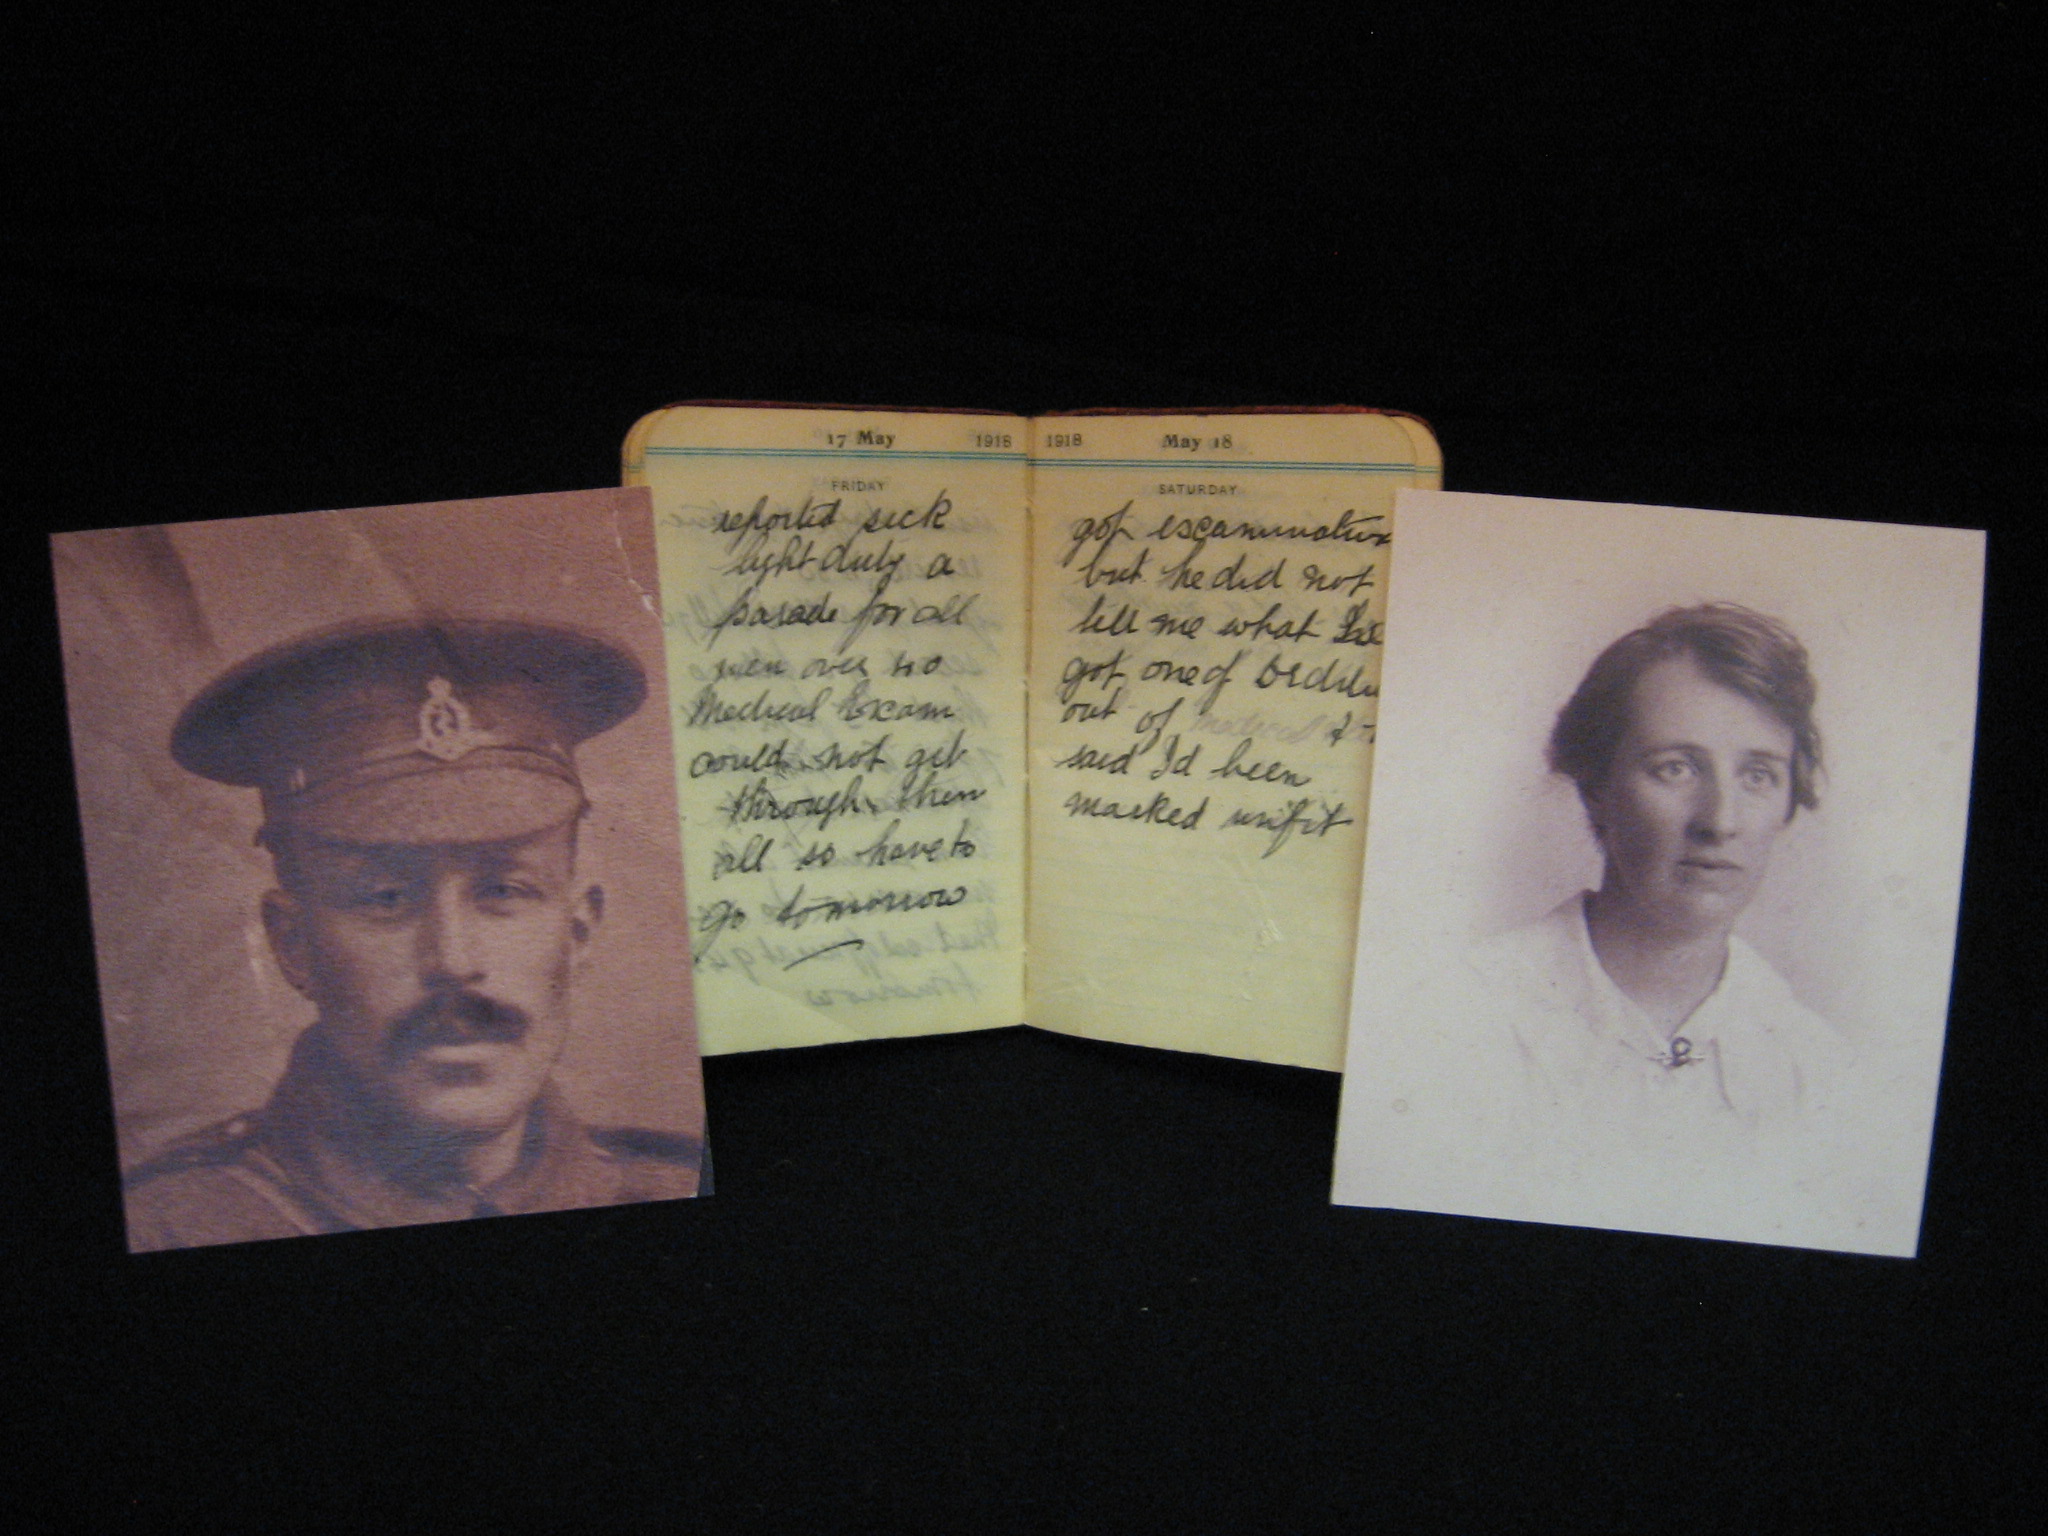 17 May 1918
FRIDAY
reported sick
light duty a
parade for all
men over no
Medical Exam
could not get
through them
all so have to
go tomorrow
1918 May 18
SATURDAY
got escamination
but he did not
tell me what
got one of
out of
said I'd been
marked unfit